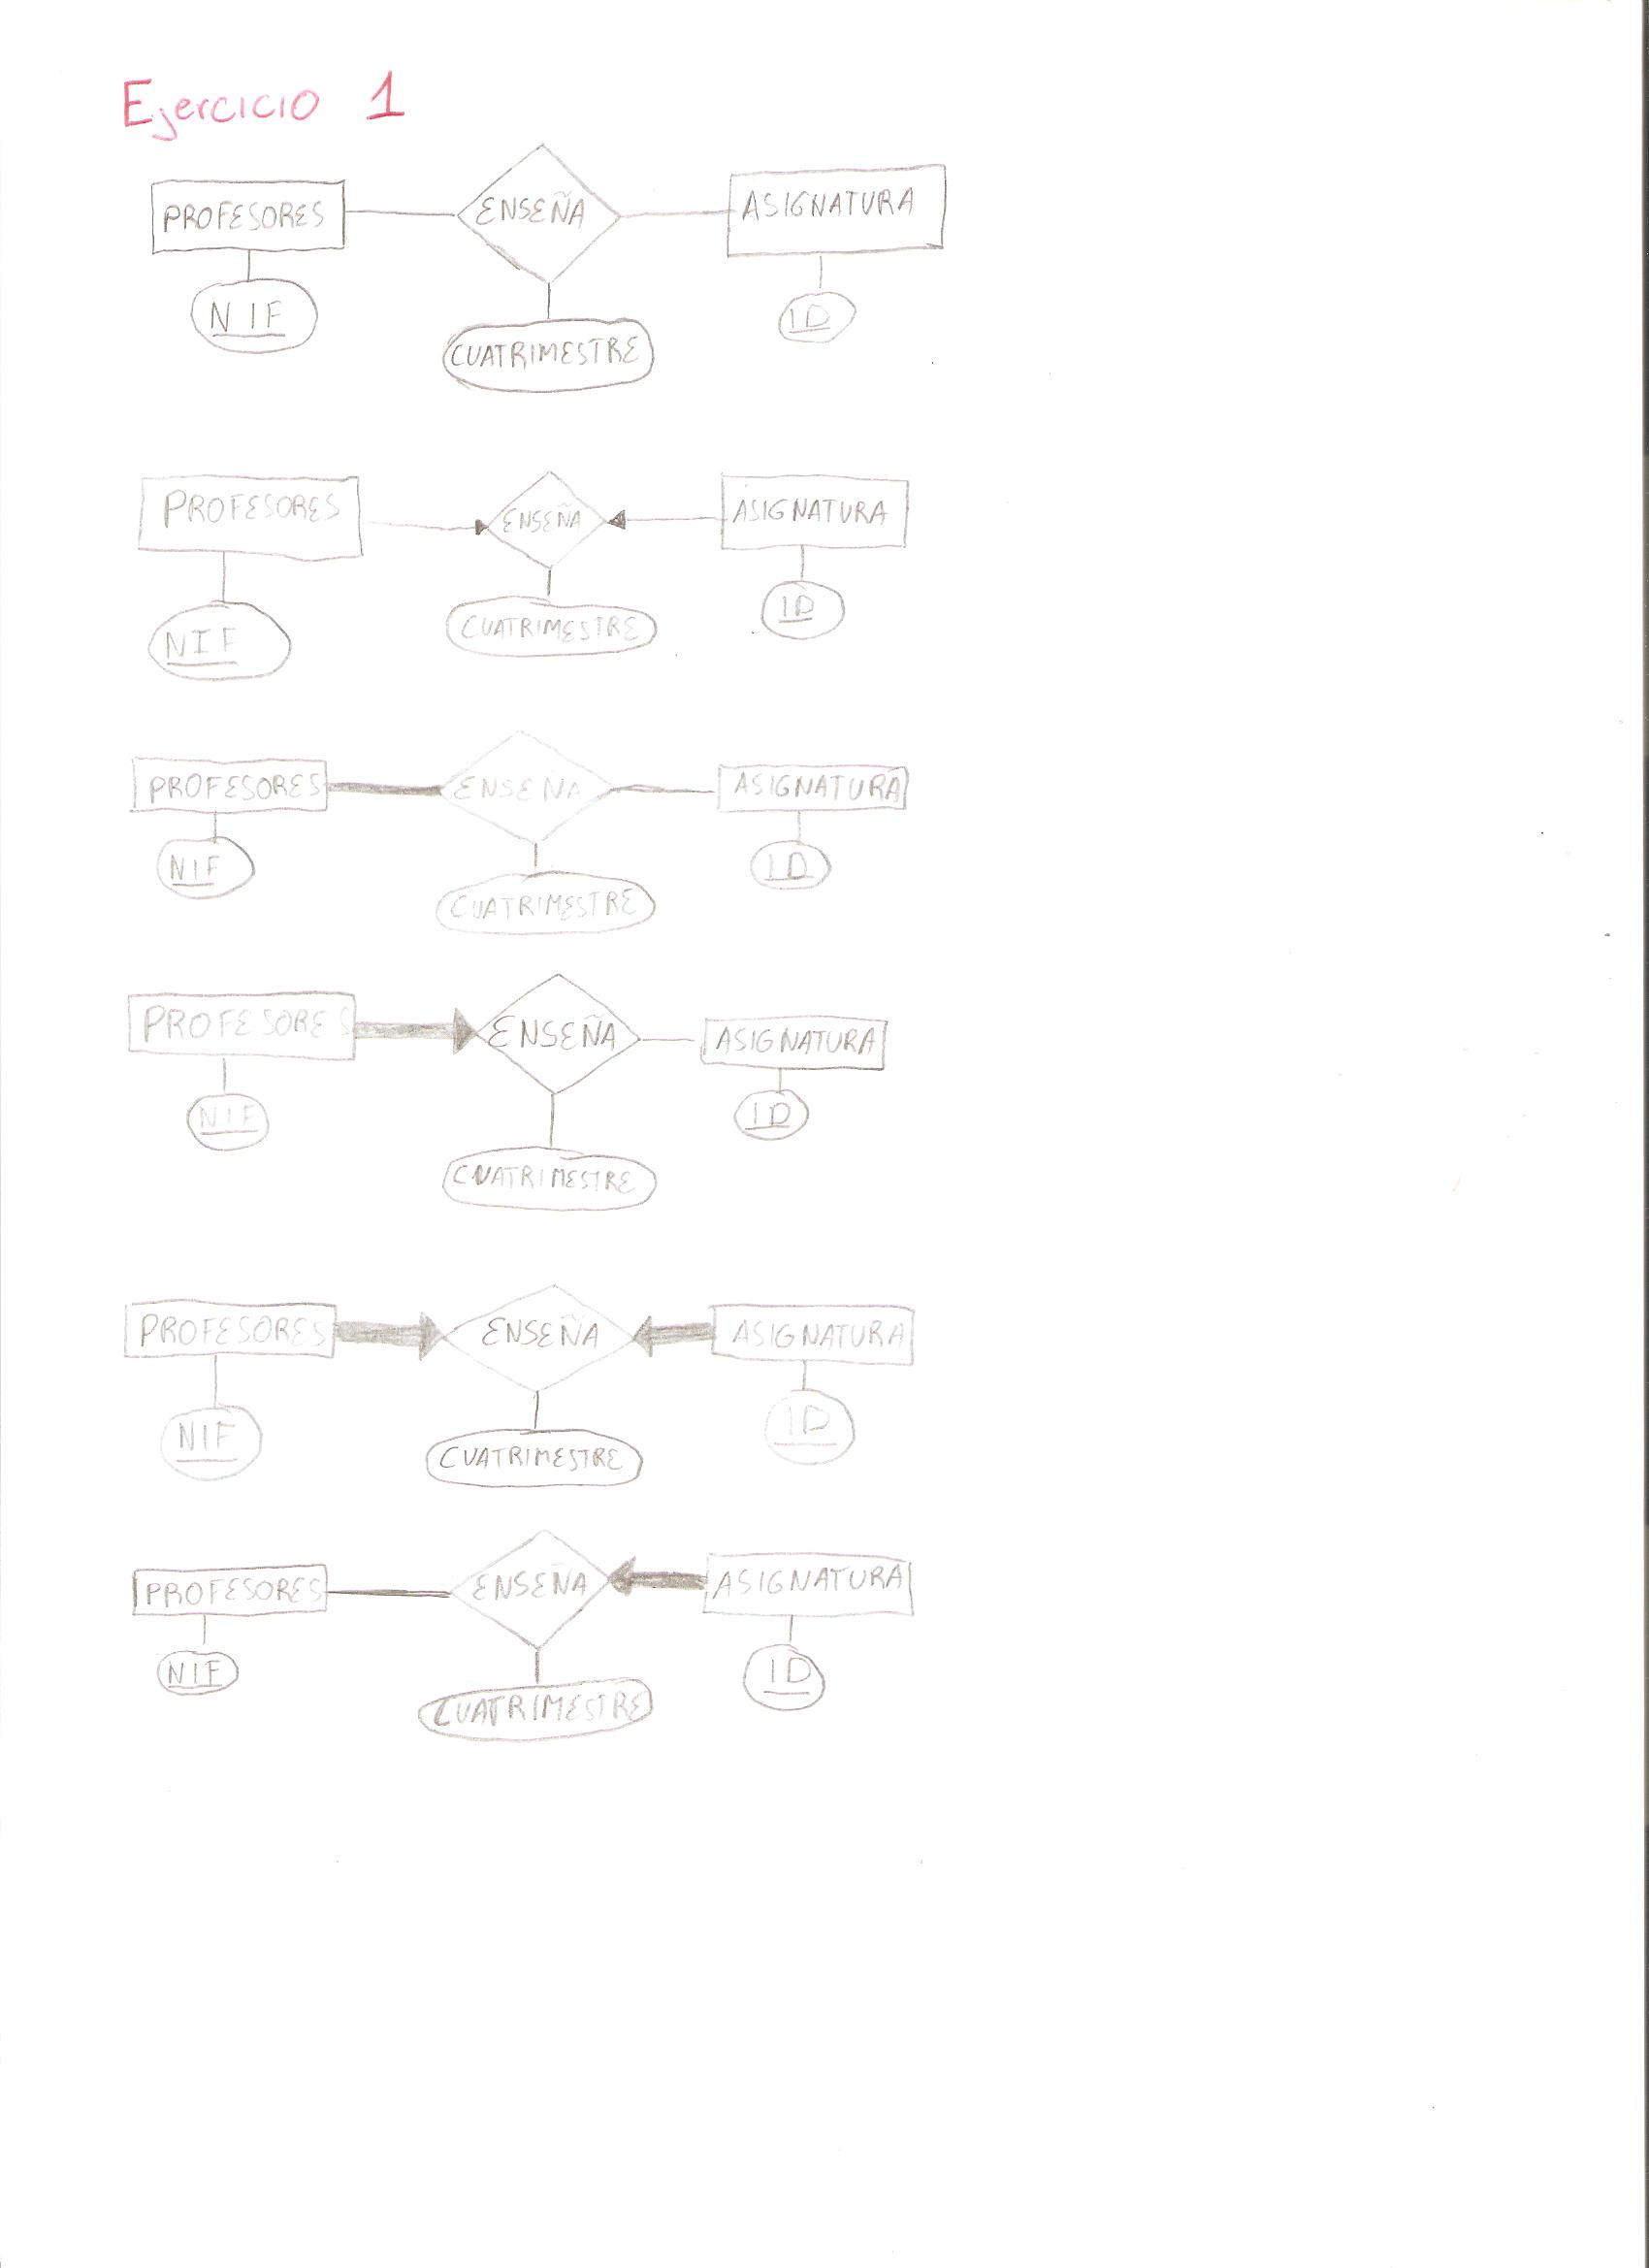 Ejercicio 1
PROFESORES ENSEÑA ASIGNATURA
NIF CUATRIMESTRE ID
PROFESORES ENSEÑA ASIGNATURA
NIF CUATRIMESTRE ID
PROFESORES ENSEÑA ASIGNATURA
NIF CUATRIMESTRE ID
PROFESORES ENSEÑA ASIGNATURA
NIF CUATRIMESTRE ID
PROFESORES ENSEÑA ASIGNATURA
NIF CUATRIMESTRE ID
PROFESORES ENSEÑA ASIGNATURA
NIF CUATRIMESTRE ID